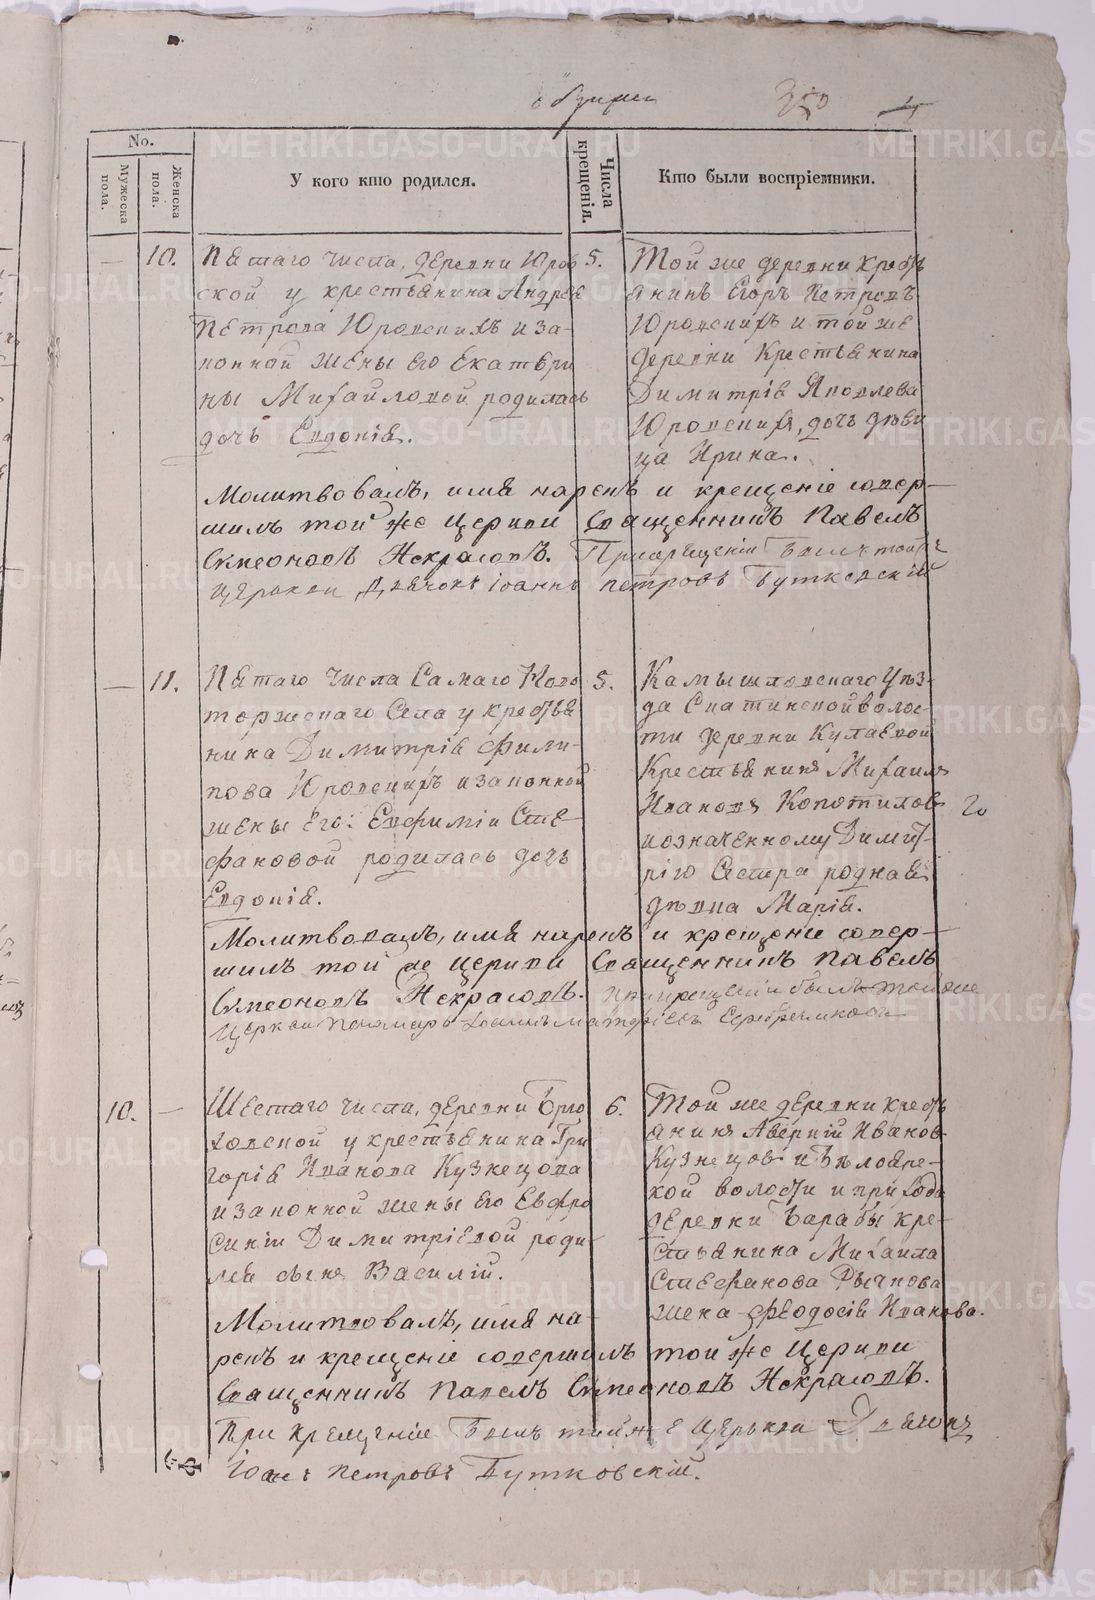 350
No.
Мужеска пола.
Женска пола.
У кого кто родился.
Числа крещенія.
Кто были воспріемники.
— 10. Пятаго числа, деревни Юров
ской у крестьянина Андрея
Петрова Юровскихъ и за-
конной жены его Екатери
ны Михайловой родилась
дочь Евдокія.
5.
Той же деревни кресть
янинъ Егоръ Петровъ
Юровскихъ и той же
деревни Крестьянина
Димитрія Яковлева
Юровскихъ, дочь дѣви
ца Ирина.
Молитвовалъ, имя нарекъ и крещеніе совер-
шилъ той же Церкви Священникъ Павелъ
Симеоновъ Некрасовъ. При крещеніи былъ той же
церькви Дьячокъ Іоаннъ Петровъ Бутковскій
— 11. Пятаго числа Самаго Ново
торжскаго Села у кресть
янина Димитрія Фили-
пова Юровскихъ и законной
жены его: Евфиміи Сте
фановой родилась дочь
Евдокія.
5.
Камышловскаго Уѣз-
да Скатинской воло-
сти деревни Кулаевой
Крестьянинъ Михаилъ
Ивановъ Копотиловъ
и означенному Димит-
рію Сестра родная
дѣвка Марія.
Молитвовалъ, имя нарекъ и крещеніе совер-
шилъ той же Церкви Священникъ Павелъ
Симеоновъ Некрасовъ. При крещеніи былъ той же
Церкви Пономарь Іоаннъ
10. — Шестаго числа, деревни
у крестьянина Гри
горія Иванова Кузнецова
и законной жены его Евфро
синіи Димитріевой роди-
лся сынъ Василій.
6.
Той же деревни кресть
янинъ Аверкій Ивановъ
Кузнецовъ и Бѣлояре-
кой волости и прихода
деревни Барабы кре-
стьянина Михаила
Стефанова Рычкова
жена Феодосія Иванова.
Молитвовалъ, имя на-
рекъ и крещеніе совершилъ той же Церкви
Священникъ Павелъ Симеоновъ Некрасовъ.
При крещеніи былъ той же Церькви Дьячокъ
Іоаннъ Петровъ Бутковскій.
METRIKI.GASO-URAL.RU